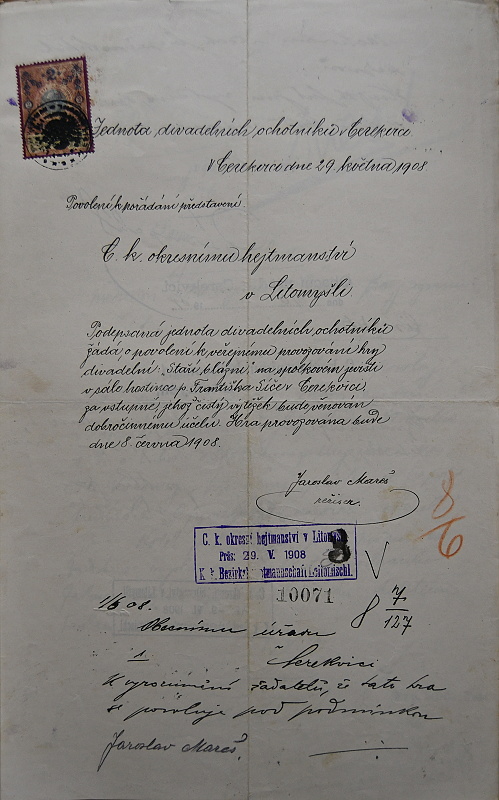 Jednota divadelních ochotníků v Cerekvici.
V Cerekvici dne 29. května 1908.
Povolení k pořádání představení.
C. k. okresnímu hejtmanství
v Litomyšli.
Podepsaná jednota divadelních ochotníků
žádá o povolení k veřejnému provozování hry
divadelní „Staří blázni“ na spolkovém jevišti
v sále hostince p. Františka v Cerekvici,
za vstupné, jehož čistý výtěžek bude věnován
dobročinnému účelu. Hra provozována bude
dne 8. června 1908.
Jaroslav Mareš
režiser.
8/6
C. k. okresní hejtmanství v Litomyšli
Präs: 29. V. 1908 3
K. k. Bezirkshauptmannschaft Leitomischl.
10071
8 7/127
1/6 08.
Obecnímu úřadu
1 Cerekvici
k vyrozumění žadatelů, že tato hra
se povoluje pod podmínkou
Jaroslav Mareš.